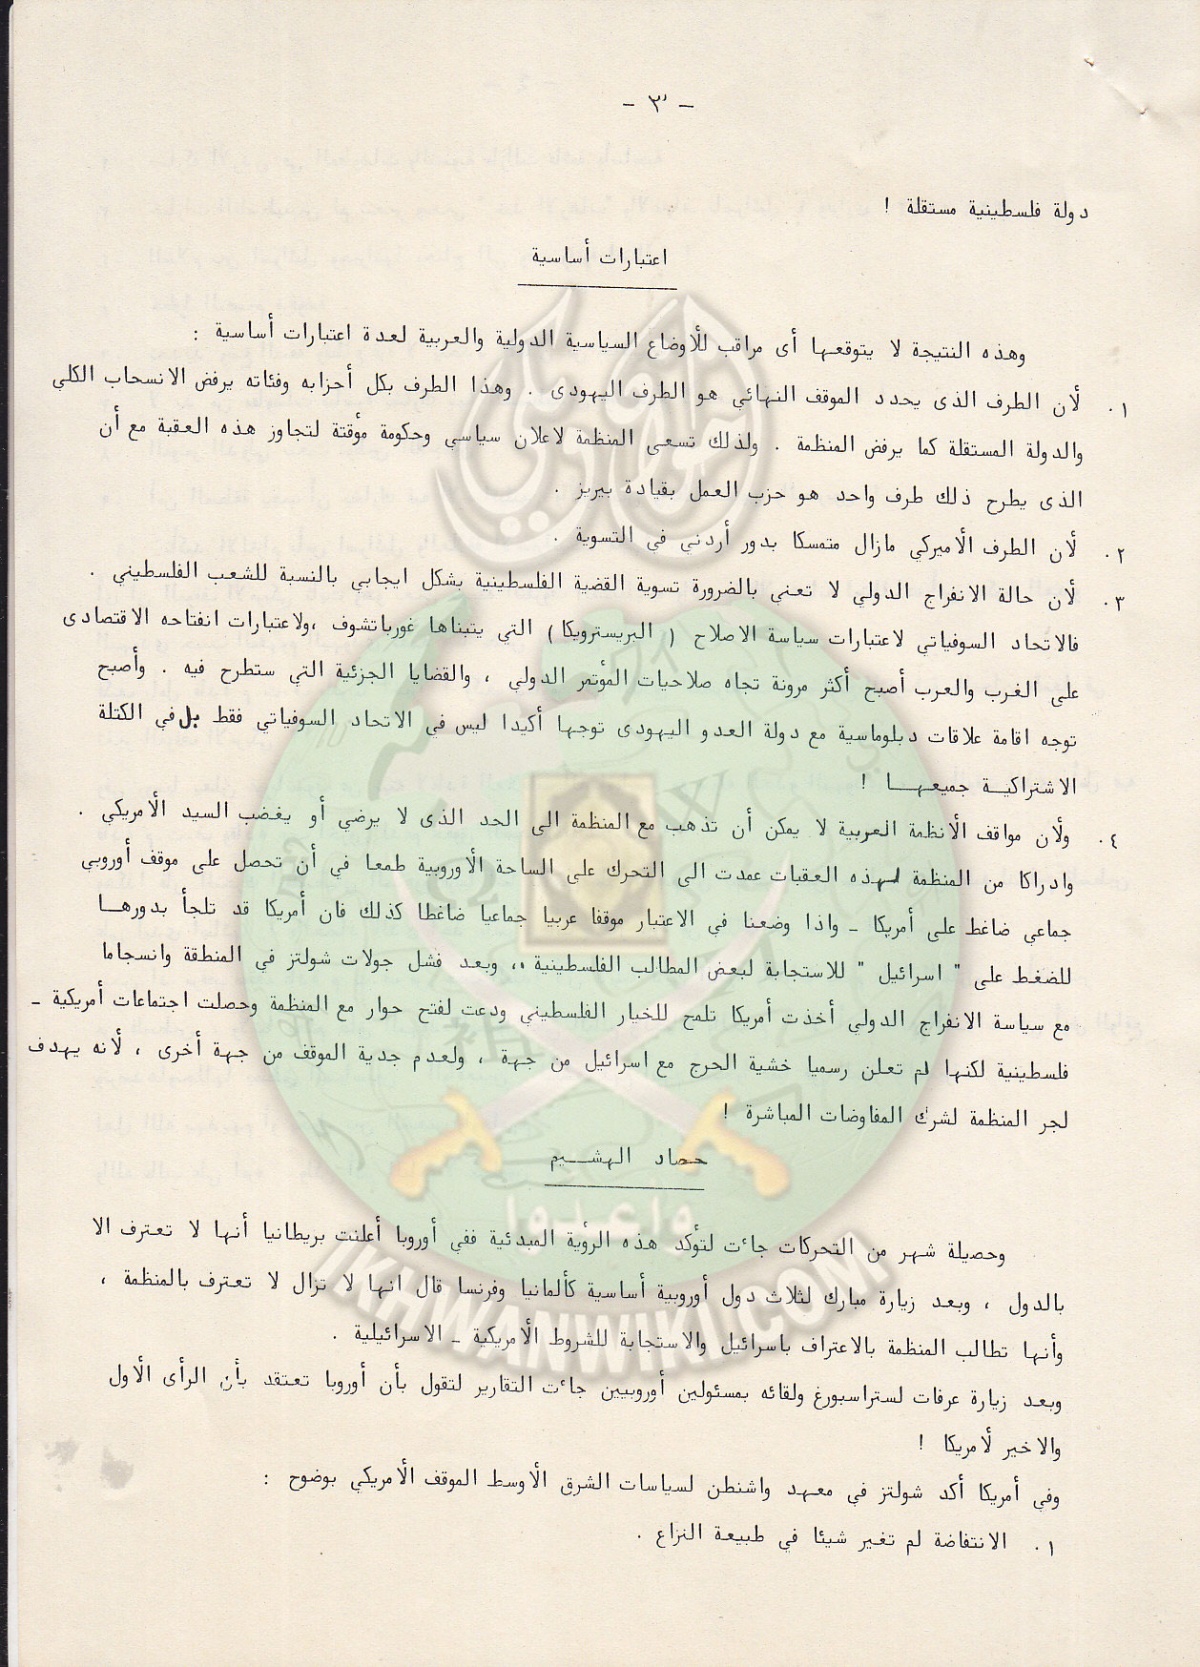 - ٣ -
دولة فلسطينية مستقلة !
اعتبارات أساسية
وهذه النتيجة لا يتوقعها أى مراقب للأوضاع السياسية الدولية والعربية لعدة اعتبارات أساسية :
١. لأن الطرف الذى يحدد الموقف النهائي هو الطرف اليهودى . وهذا الطرف بكل أحزابه وفئاته يرفض الانسحاب الكلى
والدولة المستقلة كما يرفض المنظمة . ولذلك تسعى المنظمة لاعلان سياسي وحكومة مؤقتة لتجاوز هذه العقبة مع أن
الذى يطرح ذلك طرف واحد هو حزب العمل بقيادة بيريز .
٢. لأن الطرف الأميركي مازال متمسكا بدور أردني في التسوية .
٣. لأن حالة الانفراج الدولي لا تعني بالضرورة تسوية القضية الفلسطينية بشكل ايجابي بالنسبة للشعب الفلسطيني .
فالاتحاد السوفياتي لاعتبارات سياسة الاصلاح ( البريسترويكا ) التي يتبناها غورباتشوف ،ولاعتبارات انفتاحه الاقتصادى
على الغرب والعرب أصبح أكثر مرونة تجاه صلاحيات المؤتمر الدولي ، والقضايا الجزئية التي ستطرح فيه . وأصبح
توجه اقامة علاقات دبلوماسية مع دولة العدو اليهودى توجها أكيدا ليس في الاتحاد السوفياتي فقط بل في الكتلة
الاشتراكية جميعها !
٤. ولأن مواقف الأنظمة العربية لا يمكن أن تذهب مع المنظمة الى الحد الذى لا يرضي أو يغضب السيد الأمريكي .
وادراكا من المنظمة لهذه العقبات عمدت الى التحرك على الساحة الأوروبية طمعا في أن تحصل على موقف أوروبي
جماعي ضاغط على أمريكا ـ واذا وضعنا في الاعتبار موقفا عربيا جماعيا ضاغطا كذلك فان أمريكا قد تلجأ بدورها
للضغط على " اسرائيل " للاستجابة لبعض المطالب الفلسطينية ،، وبعد فشل جولات شولتز في المنطقة وانسجاما
مع سياسة الانفراج الدولي أخذت أمريكا تلمح للخيار الفلسطيني ودعت لفتح حوار مع المنظمة وحصلت اجتماعات أمريكية ـ
فلسطينية لكنها لم تعلن رسميا خشية الحرج مع اسرائيل من جهة ، ولعدم جدية الموقف من جهة أخرى ، لأنه يهدف
لجر المنظمة لشرك المفاوضات المباشرة !
حصاد الهشيم
وحصيلة شهر من التحركات جاءت لتؤكد هذه الرؤية المبدئية ففي أوروبا أعلنت بريطانيا أنها لا تعترف الا
بالدول ، وبعد زيارة مبارك لثلاث دول أوروبية أساسية كألمانيا وفرنسا قال انها لا تزال لا تعترف بالمنظمة ،
وأنها تطالب المنظمة بالاعتراف باسرائيل والاستجابة للشروط الأمريكية ـ الاسرائيلية .
وبعد زيارة عرفات لستراسبورغ ولقائه بمسئولين أوروبيين جاءت التقارير لتقول بأن أوروبا تعتقد بأن الرأى الأول
والاخير لأمريكا !
وفي أمريكا أكد شولتز في معهد واشنطن لسياسات الشرق الأوسط الموقف الأمريكي بوضوح :
١. الانتفاضة لم تغير شيئا في طبيعة النزاع .
وأعدوا
IKHWANWIKI.COM